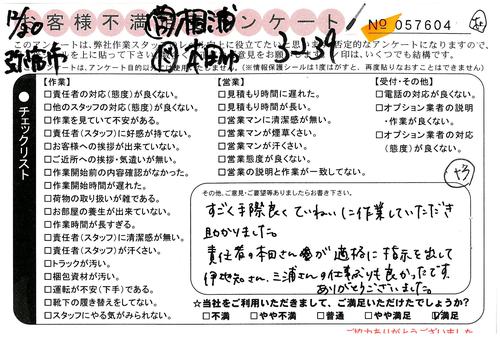 お客様不満
アンケート
No 057604
11/20
営 相浦
3-2-39
このアンケートは、弊社作業スタッフ
否定的なアンケートになりますので、
お貼り下さい。
ご意見をお聞かせ下さい。
印は、いくつでも結構です。
アンケート目的以外
(※情報保護シールは1度はがすと、再度貼りなおすことはできません。)
チェックリスト
【作業】
□責任者の対応(態度)が良くない。
□他のスタッフの対応(態度)が良くない。
□作業を見ていて不安がある。
□責任者(スタッフ)に好感が持てない。
□お客様への挨拶が出来ていない。
□ご近所への挨拶・気遣いが無い。
□作業開始前の内容確認がなかった。
□作業開始時間が遅れた。
□荷物の取り扱いが雑である。
□お部屋の養生が出来ていない。
□作業時間が長すぎる。
□責任者(スタッフ)に清潔感が無い。
□責任者(スタッフ)が汗くさい。
□トラックが汚い。
□梱包資材が汚い。
□運転が不安(下手)である。
□靴下の履き替えをしてない。
□スタッフにやる気がみられない。
【営業】
□見積もり時間に遅れた。
□見積もり時間が長い。
□営業マンに清潔感が無い。
□営業マンが煙草くさい。
□営業マンが汗くさい。
□営業態度が良くない。
□営業の説明と作業が一致してない。
【受付・その他】
□電話の対応が良くない。
□オプション業者の説明
・作業が良くない。
□オプション業者の対応
(態度)が良くない。
その他、ご意見・ご要望等ありましたらお書き下さい。
すごく手際良くていねいに作業していただき
助かりました。
責任者の本田さんが適格に指示を出して
伊地知さん、三浦さんの仕事ぶりも良かったです
ありがとうございました。
☆当社をご利用いただきまして、ご満足いただけたでしょうか?
□不満 □やや不満 □普通 □やや満足 ☑満足
ご協力ありがとうございました